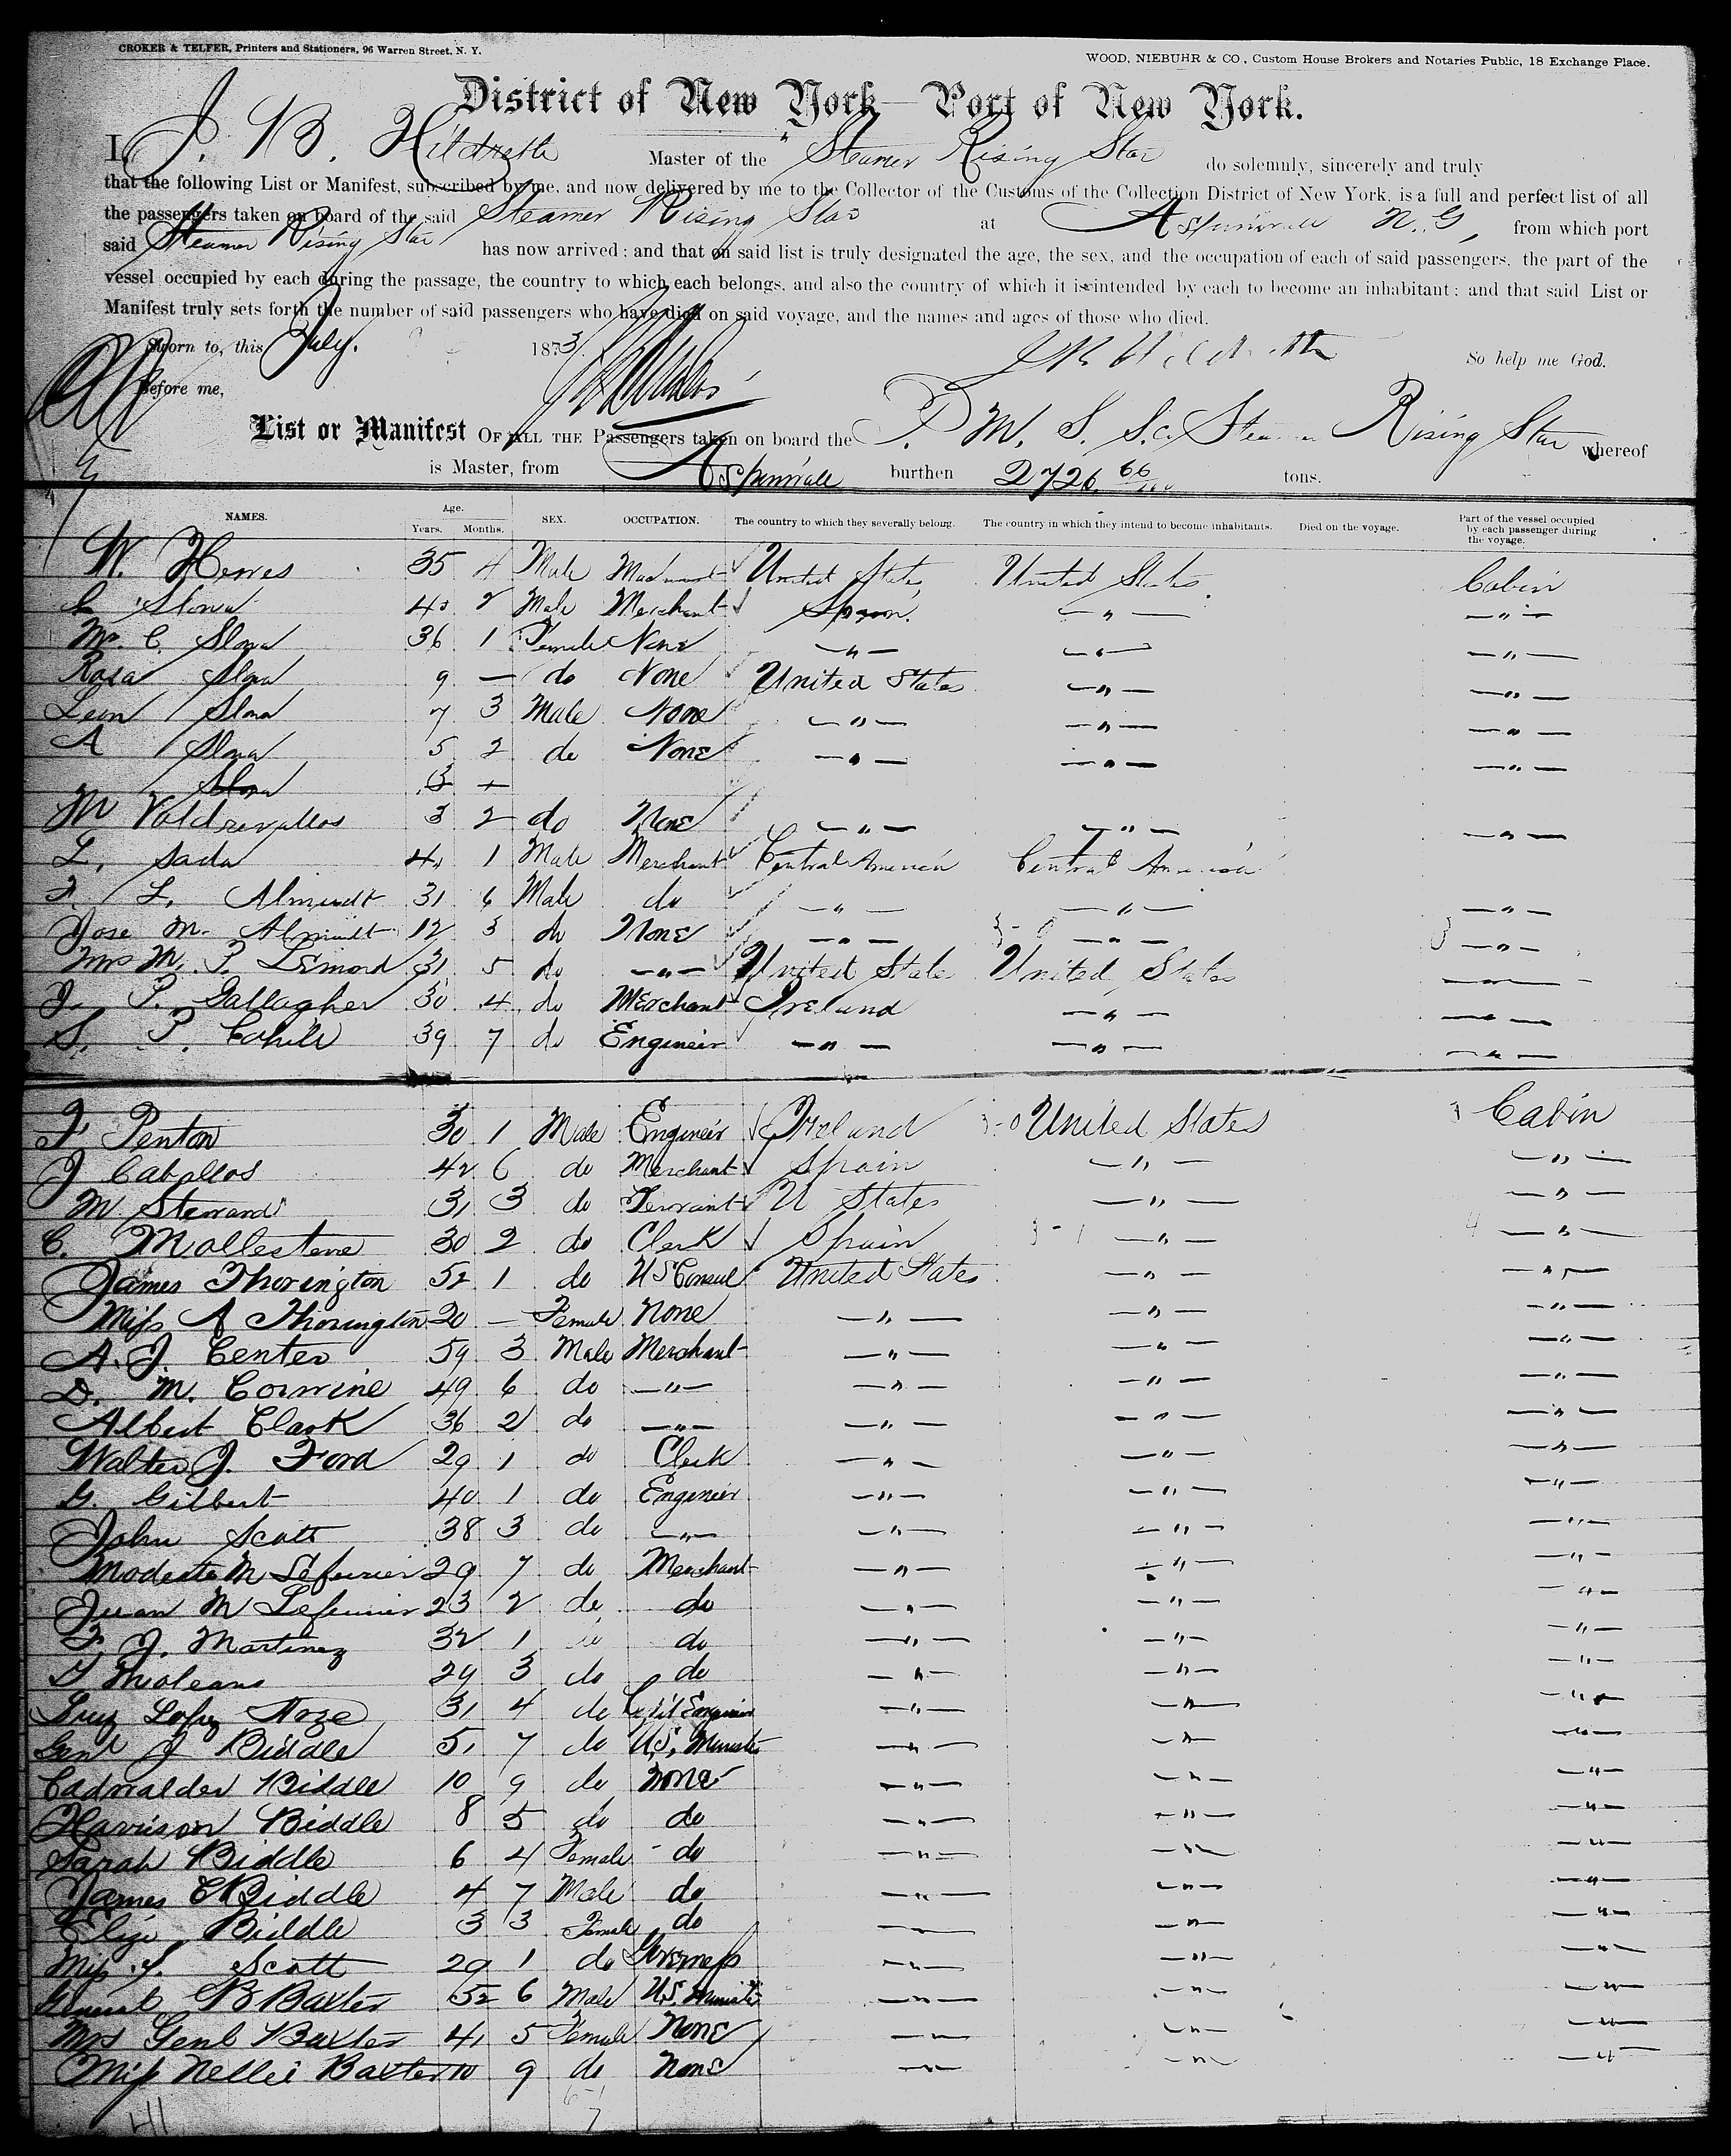 CROKER & TELFER, Printers and Stationers, 96 Warren Street, N. Y.
WOOD, NIEBUHR & CO., Custom House Brokers and Notaries Public, 18 Exchange Place.
District of New York—Port of New York.
I, J. B. Hildreth Master of the Steamer Rising Star do solemnly, sincerely and truly
that the following List or Manifest, subscribed by me, and now delivered by me to the Collector of the Customs of the Collection District of New York, is a full and perfect list of all
the passengers taken on board of the said Steamer Rising Star at Aspinwall N. G. from which port
said Steamer Rising Star has now arrived; and that on said list is truly designated the age, the sex, and the occupation of each of said passengers, the part of the
vessel occupied by each during the passage, the country to which each belongs, and also the country of which it is intended by each to become an inhabitant; and that said List or
Manifest truly sets forth the number of said passengers who have died on said voyage, and the names and ages of those who died.
Sworn to, this July. 1873 So help me God.
Before me,
List or Manifest OF ALL THE Passengers taken on board the P. M. S. S. Co Steamer Rising Star whereof
is Master, from Aspinwall burthen 2726 66/100 tons.
NAMES. Age. Years. Months. SEX. OCCUPATION. The country to which they severally belong. The country in which they intend to become inhabitants. Died on the voyage. Part of the vessel occupied by each passenger during the voyage.
W. 35 4 Male United States United States Cabin
2 Male Merchant Spain. " "
Mrs. C. 36 1 Female None " " "
Rosa 9 — do None United States " "
Leon 7 3 Male None " " "
A 5 2 do None " " "
M 3 2 do None " " "
L. Sada 1 Male Merchant Central America Central America
F. L. 31 6 Male do " " "
Jose M. 12 3 do None " " "
Mrs M. P. 31 5 do " United State United States
J. P. Gallagher 30 4 do Merchant Ireland " "
S. P. Cahill 39 7 do Engineer " " "
F. Penton 30 1 Male Engineer Ireland United States Cabin
J Caballos 42 6 do Merchant Spain " "
M Steward 31 3 do Servant U States " "
C. Mallestene 30 2 do Clerk Spain " "
James Thorington 52 1 do US Consul United States " "
Miss A Thorington 20 — Female None " " "
A. J. Center 59 3 Male Merchant " " "
D. M. Corwine 49 6 do " " " "
Albert Clark 36 2 do " " " "
Walter J. Ford 29 1 do Clerk " " "
G. Gilbert 40 1 do Engineer " " "
John Scott 38 3 do " " " "
Modesto M 29 7 do Merchant " " "
Juan M 23 2 do do " " "
F. J. Martinez 32 1 do do " " "
29 3 do do " " "
Lopez 31 4 do Civil Engineer " " "
Genl J Biddle 51 7 do U.S. Minister " " "
Cadwalader Biddle 10 9 do None " " "
Harrison Biddle 8 5 do do " " "
Sarah Biddle 6 4 Female do " " "
James C Biddle 4 7 Male do " " "
Eliza Biddle 3 3 Female do " " "
Miss S. Scott 29 1 do Governess " " "
General B Baxter 52 6 Male U.S. Minister " " "
Mrs Genl Baxter 41 5 Female None " " "
Miss Nellie Baxter 10 9 do None " " "